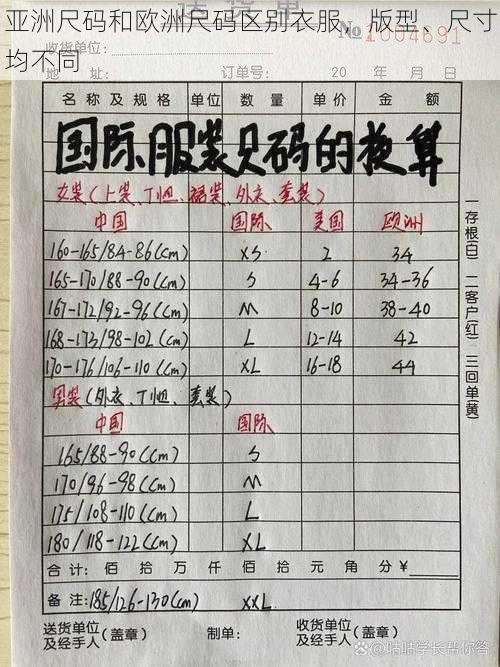 亚洲尺码和欧洲尺码区别衣服，版型、尺寸均不同
送货单
收货单位: №004691
地址: 订单号: 20 年 月 日
名称及规格 单位 数量 单价 金额
国际服装尺码的换算
女装(上装、T恤、裙装、外衣、套装)
中国 国际 美国 欧洲
160-165/84-86(cm) XS 2 34
165-170/88-90(cm) S 4-6 34-36
167-172/92-96(cm) M 8-10 38-40
168-173/98-102(cm) L 12-14 42
170-176/106-110(cm) XL 16-18 44
男装(外衣、T恤、套装)
中国 国际
165/88-90(cm) S
170/96-98(cm) M
175/108-110(cm) L
180/118-122(cm) XL
合计: 佰 拾 万 仟 佰 拾 元 角 分 ¥
备注: 185/126-130(cm) XXL
送货单位及经手人(盖章) 制单: 收货单位及经手人(盖章)
一存根(白) 二客户(红) 三回单(黄)
@咕咕学长帮你答